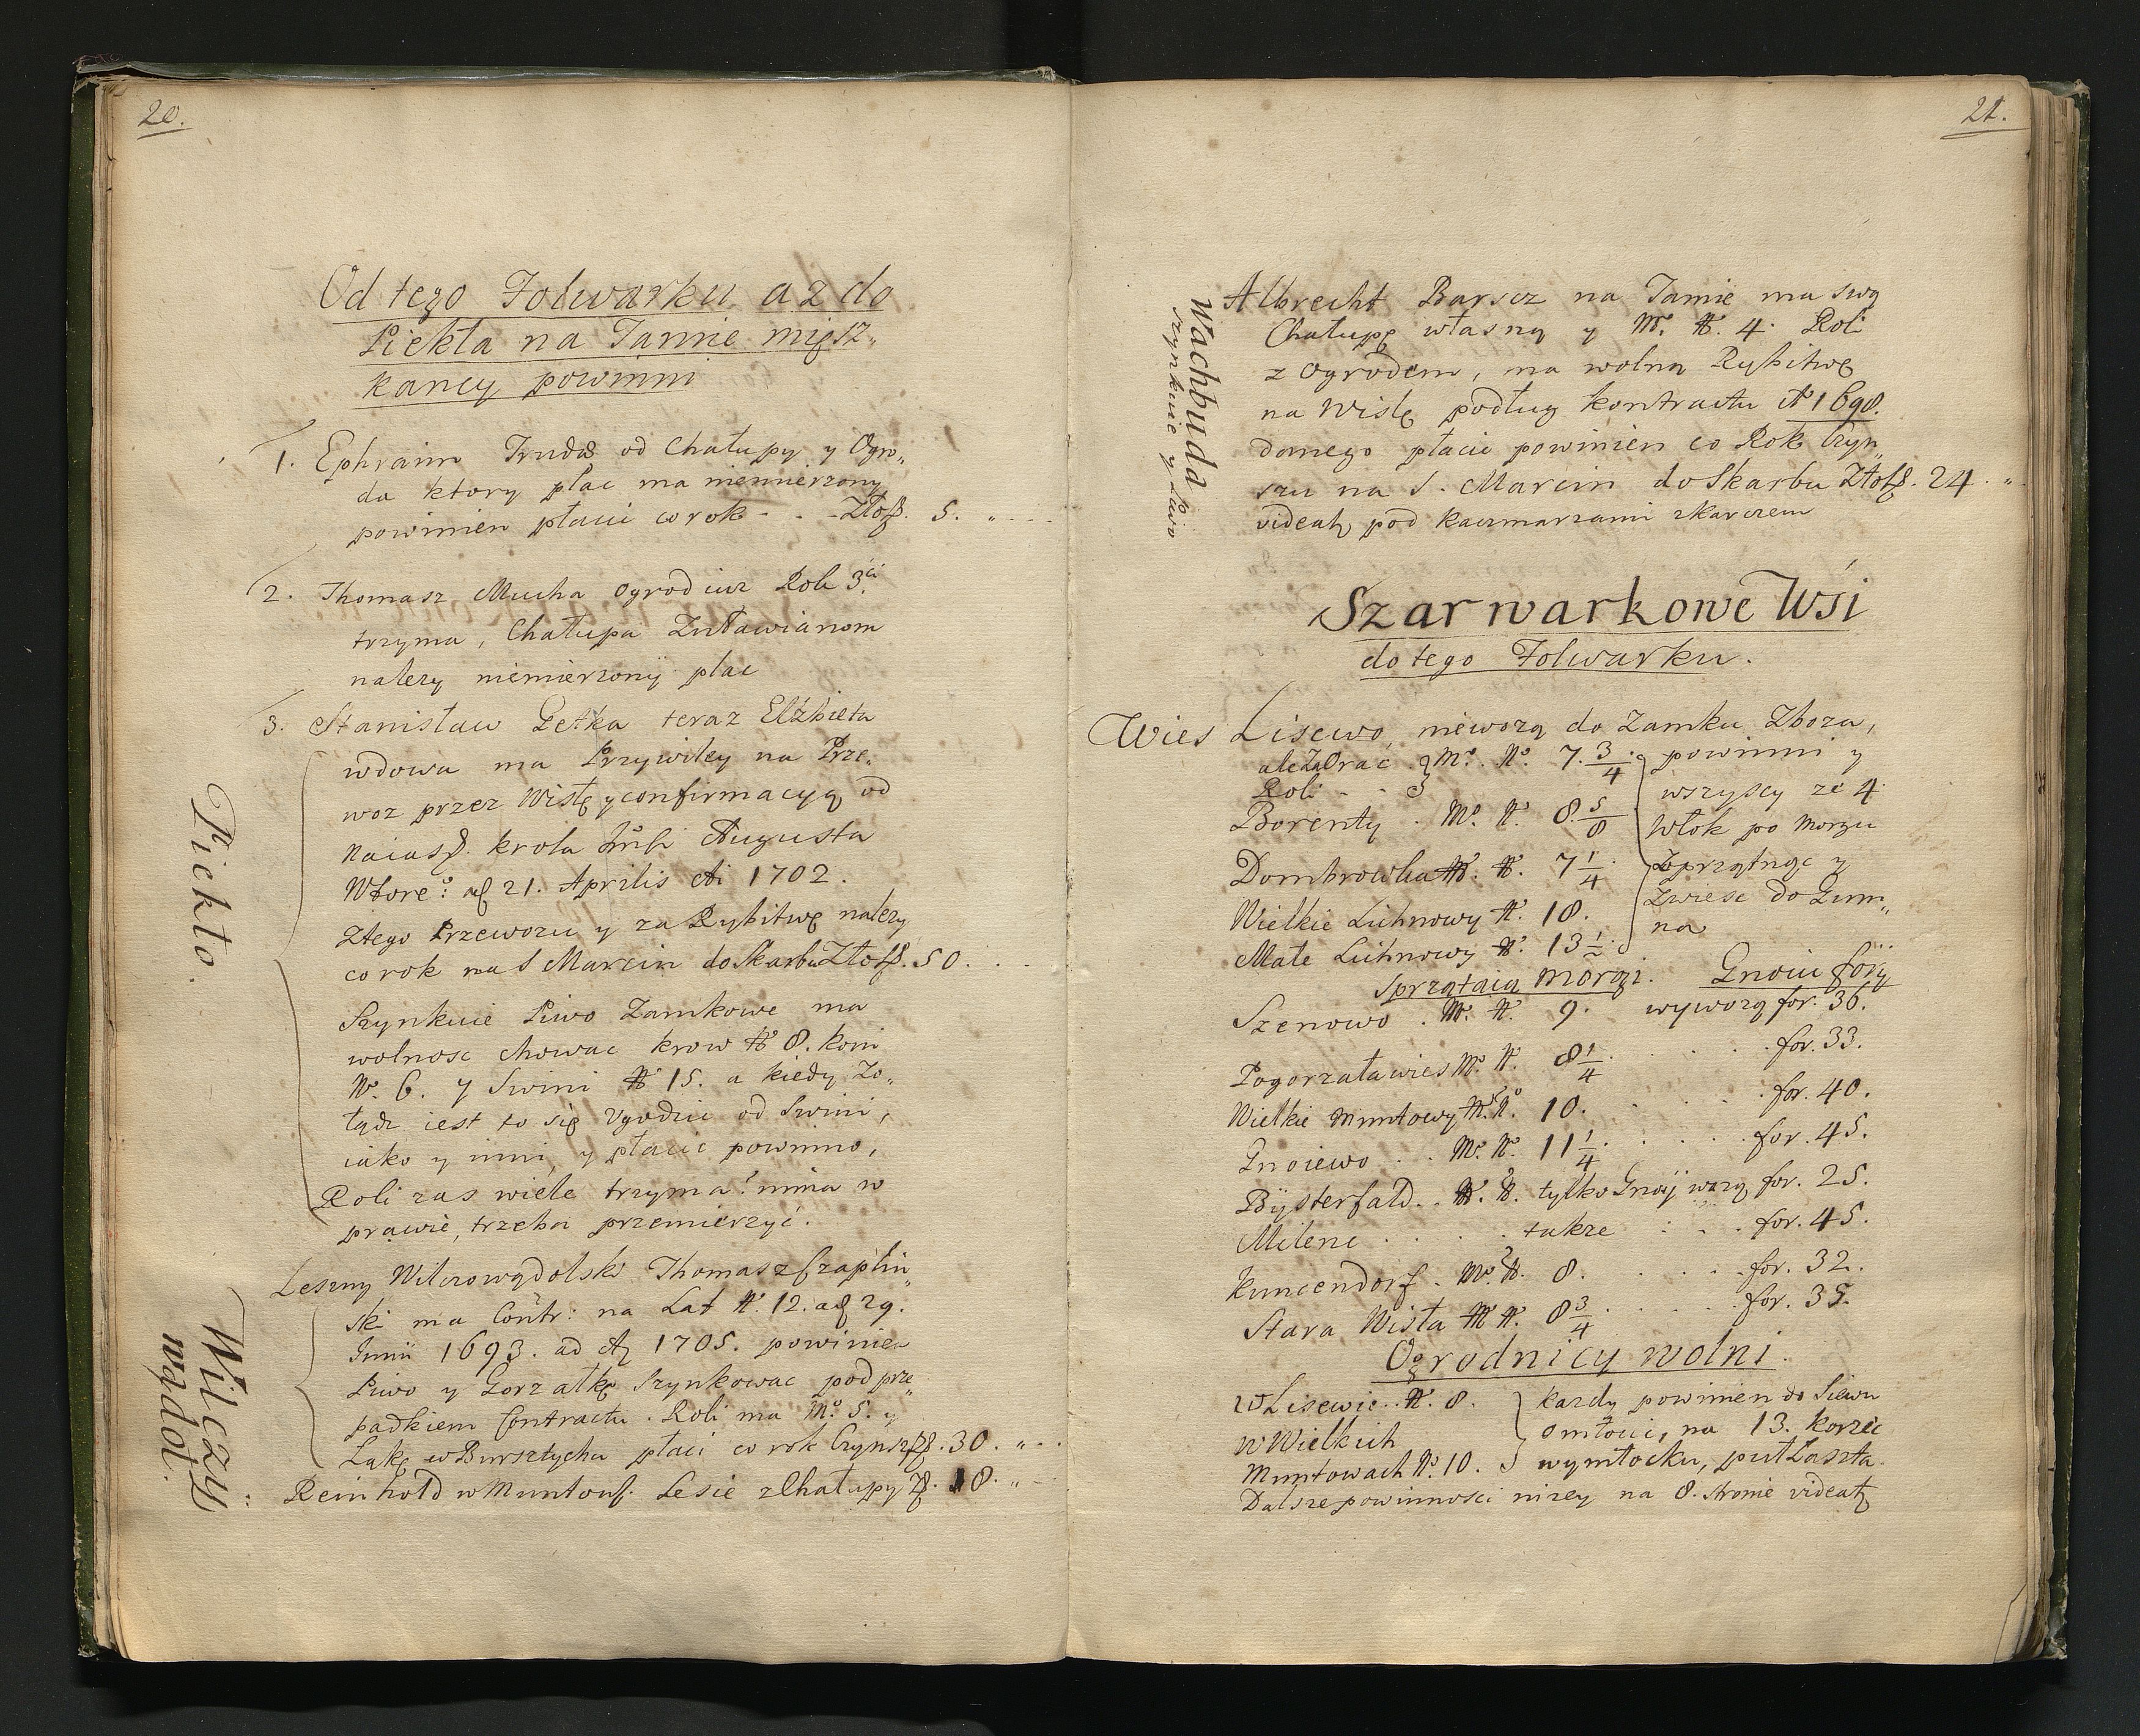 20.
Od tego Folwarku aż do
Piekła na Tamie mięsz„
kancy powinni
1. Ephraim Trudi od Chałupy y Ogro„
du ktory plac ma niemierzony
powinien płacić co rok - . - Złot. 5. „
2. Thomasz Mucha Ogrod iusz Roli 3ci
trzyma, Chałupa Zuławianom
nalezy niemierzony plac
3. Stanisław Petka teraz Elżbieta
wdowa ma Przywiley na Prze„
woz przez Wisłę y confirmacyą od
Naiasz. krola Augusta
Wtore°: 21. Aprilis Ai 1702.
Ztego Przewozu y za Rybitwę nalezy
co rok na S Marcin do Skarbu Złot. 50.
Szynkuie Piwo Zamkowe ma
wolnosc chowac krow N° 8. koni
N°. 6. y Swini N° 15. a kiedy Zo„
łądz iest to się Vgodzic od Swini,
iako y inni, y płacic powinno,
Roli zas wiele trzyma? nima w
prawie, trzeba przemierzyć.
Piekło.
Leszny Wilczowądolski Thomasz Czaplin„
ski ma Contr: na Lat N°. 12. 29.
Junii 1693. ad 1705. powinien
Piwo y Gorzałkę Szynkowac pod prze„
padkiem Contractu. Roli ma M° 5. y
Łąkę w Bursztychu płaci co rok Czynsz 30. „
Wilczy
wądoł.
Reinhold w Muntows. Lesie z Chałupy 18. „
21.
Albrecht Barscz na Tamie ma swą
Chałupę własną y M. N°. 4. Roli
z Ogrodem, ma wolną Rybitwę
na Wisłę podług kontractu A° 1698.
danego płacic powinien co Rok Czyn„
szu na S. Marcin do Skarbu Złot. 24. „
videat pod kaczmarzami z karczem
Wachbuda
szynkuie y Piwo
Szarwarkowe Wsi
do tego Folwarku.
Wies Lisewo, niewozą do Zamku Zboza,
ale Zaorać M°. N°. 7. 3/4 powinni y
Roli - - wszyscy ze 4
Borenty . M°. N. 8. 5/8 Włok po Morgu
Dombrowka M. N. 7 1/4 Zprzątnąc y
Wielkie Lichnowy N. 18. Zwiesc do Gum„
Małe Lichnowy N°. 13 1/2. na
Sprzątaią Morgi. Gnoiu fory
Szenowo . M. N. 9. wywozą for. 36.
Pogorzała wies M°. N. 8 1/4 . . . for. 33.
Wielkie Muntowy M. N°. 10. . . . for. 40.
Gnoiewo . . M°. N°. 11 1/4. . . . for. 45.
Bÿsterfald . . M. N. tylko Gnoÿ wozą for. 25.
Milenc . . . . . takze . . . for. 45.
Kuncendorf . M°. N. 8. . . . for. 32.
Stara Wisła M N. 8 3/4. . . . for. 35.
Ogrodnicy wolni.
w Lisewie . . N°. 8. kazdy powinien do Siewu
w Wielkich omłocic, na 13. korzec
Muntowach N°. 10. wymłocku, puł Łaszta.
Dalsze powinnosci nizey na 8. stronie videat